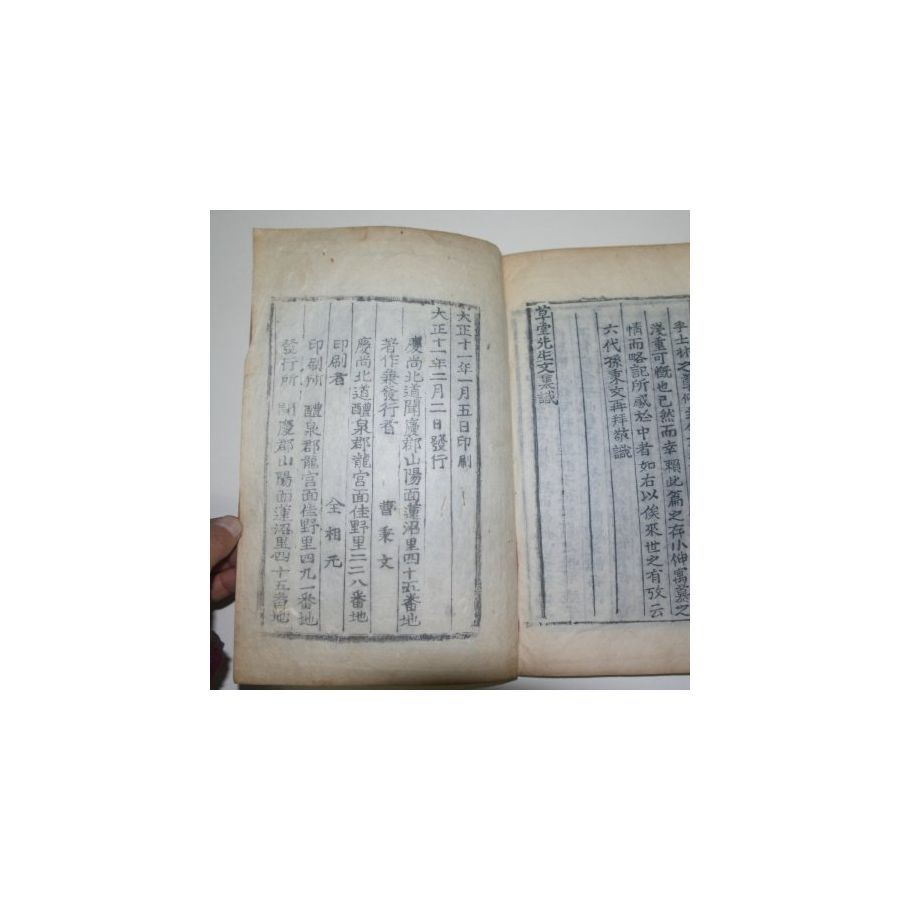 之
淺重可慨也已然而幸賴此篇之存小伸寓慕之
情而略記所感於中者如右以俟來世之有攷云
六代孫秉文再拜敬識
草堂先生文集識
大正十一年一月五日印刷
大正十一年二月二日發行
慶尚北道聞慶郡山陽面蓮沼里四十五番地
著作兼發行者 曺秉文
慶尚北道醴泉郡龍宮面佳野里二二八番地
印刷者 全相元
印刷所 醴泉郡龍宮面佳野里四九一番地
發行所 聞慶郡山陽面蓮沼里四十五番地